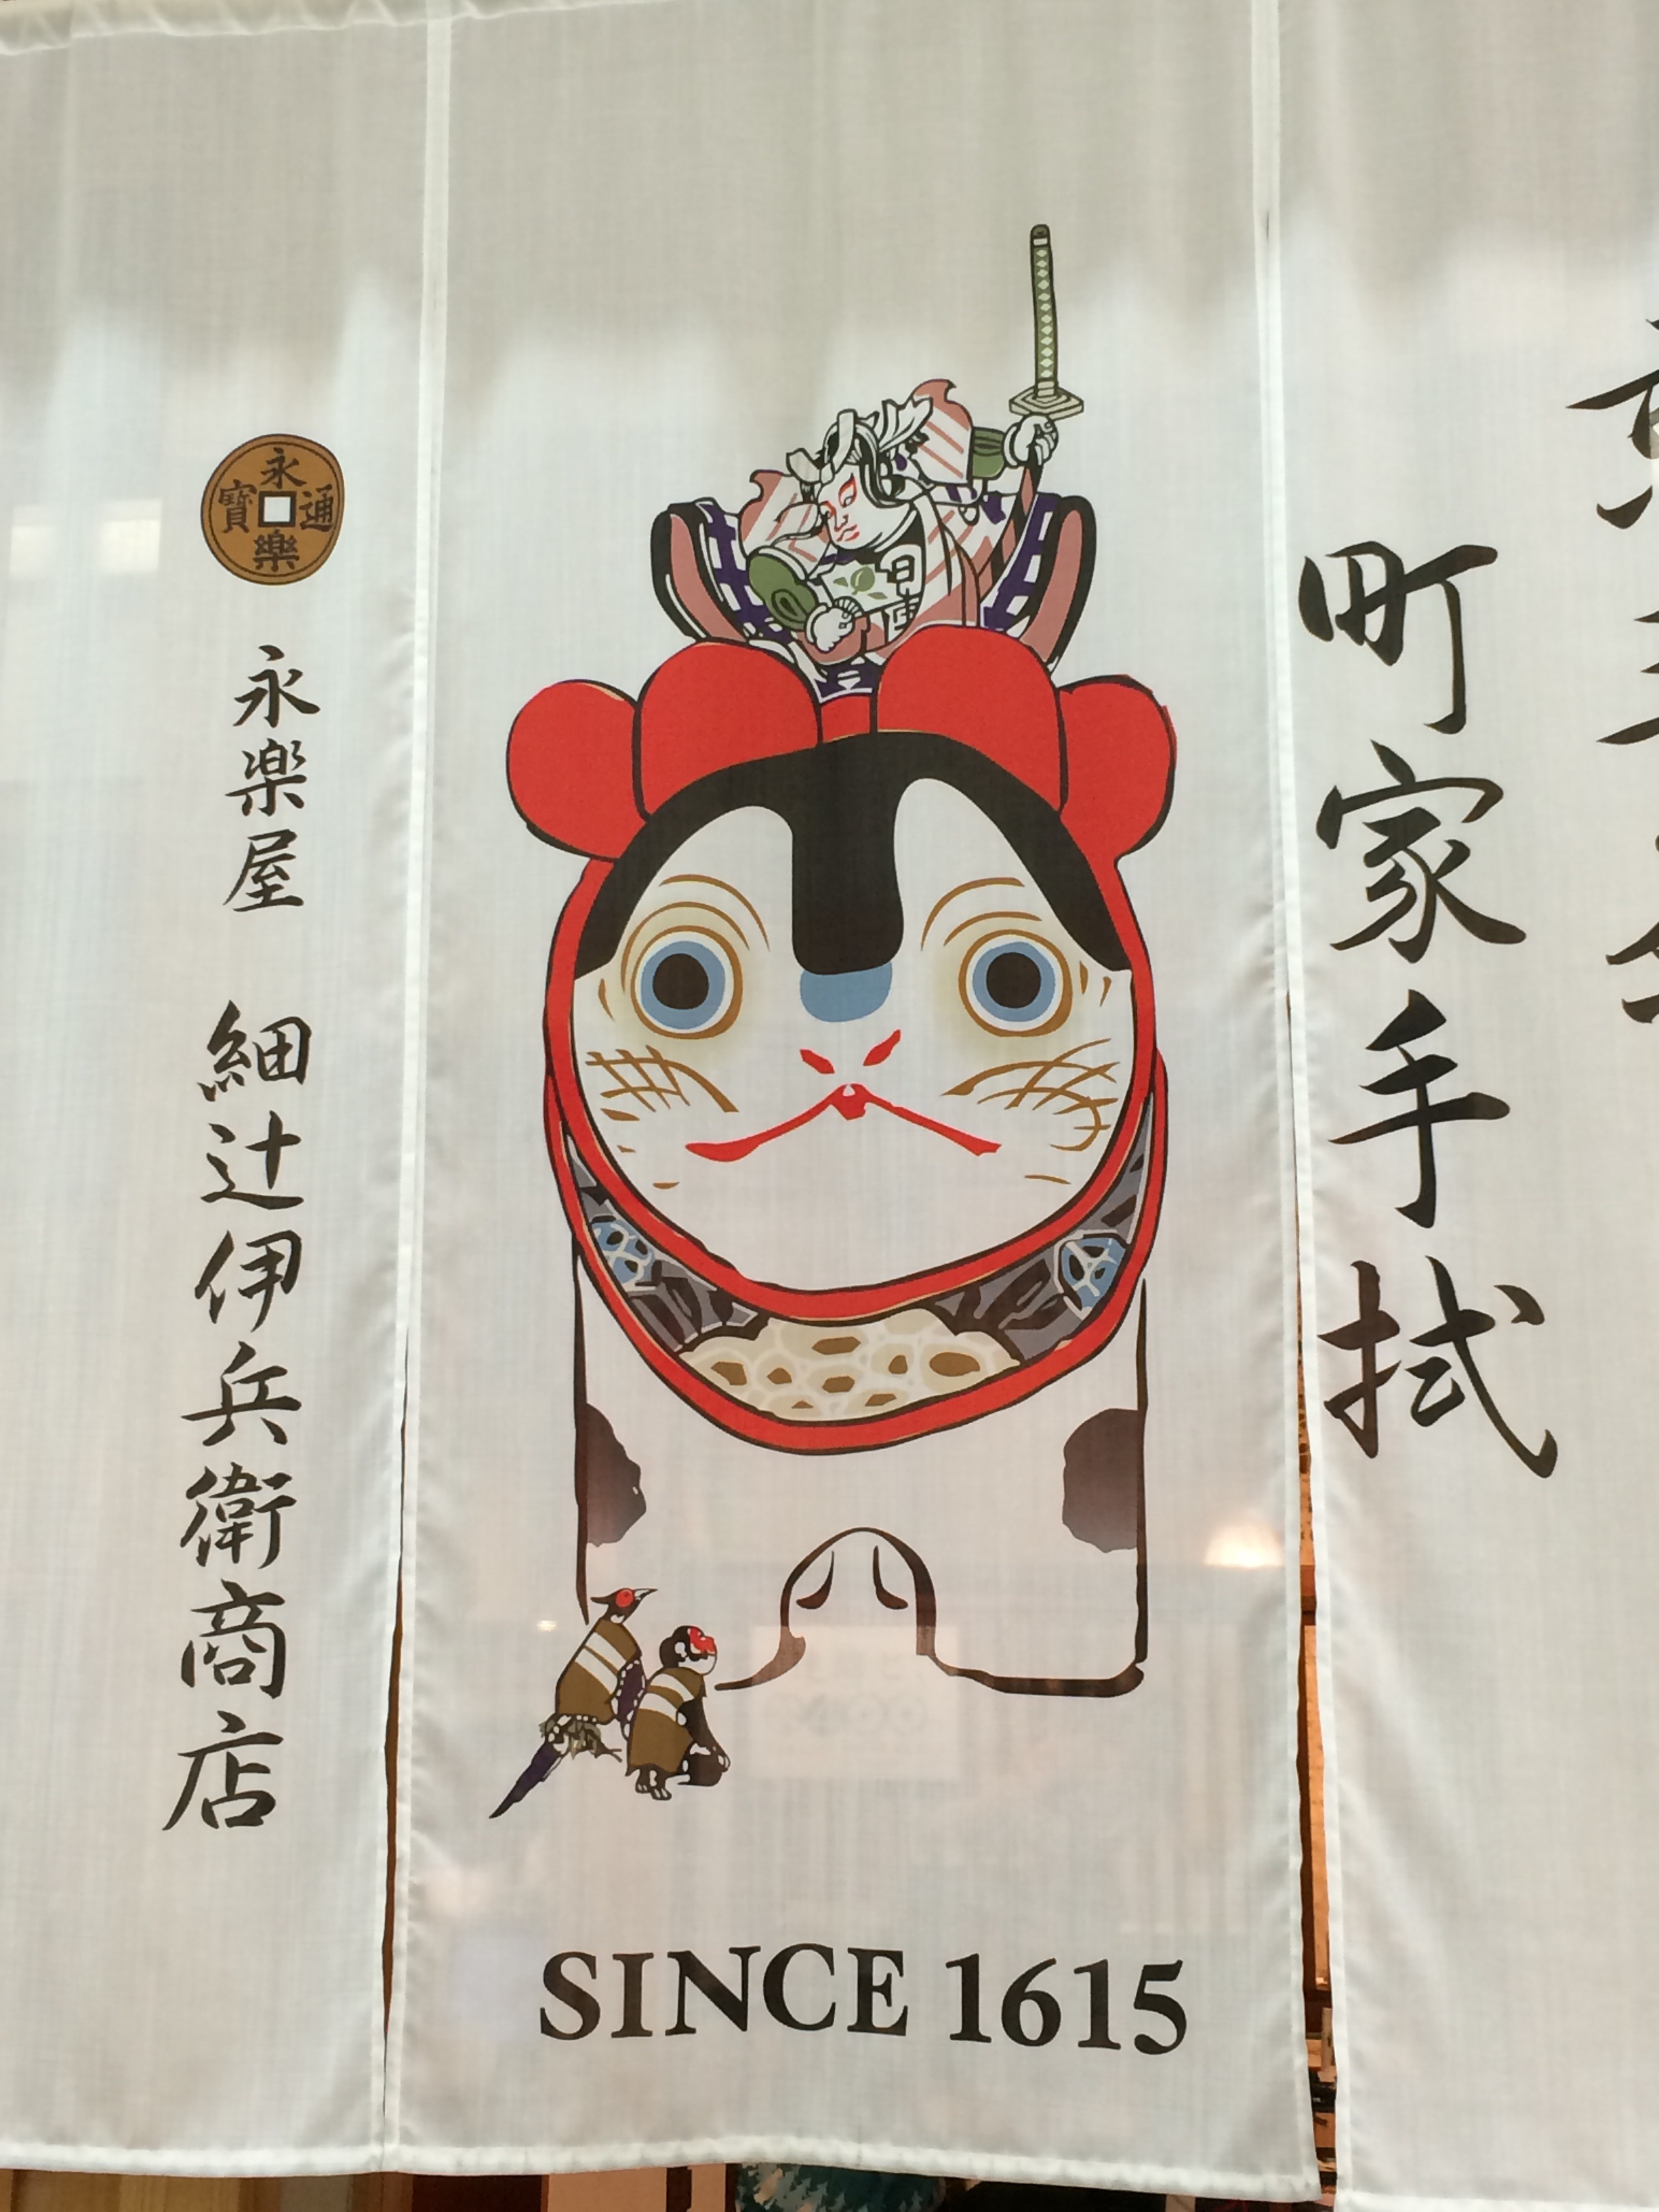 町家手拭
SINCE 1615
永樂通寳
永楽屋 細辻伊兵衛商店
日本一